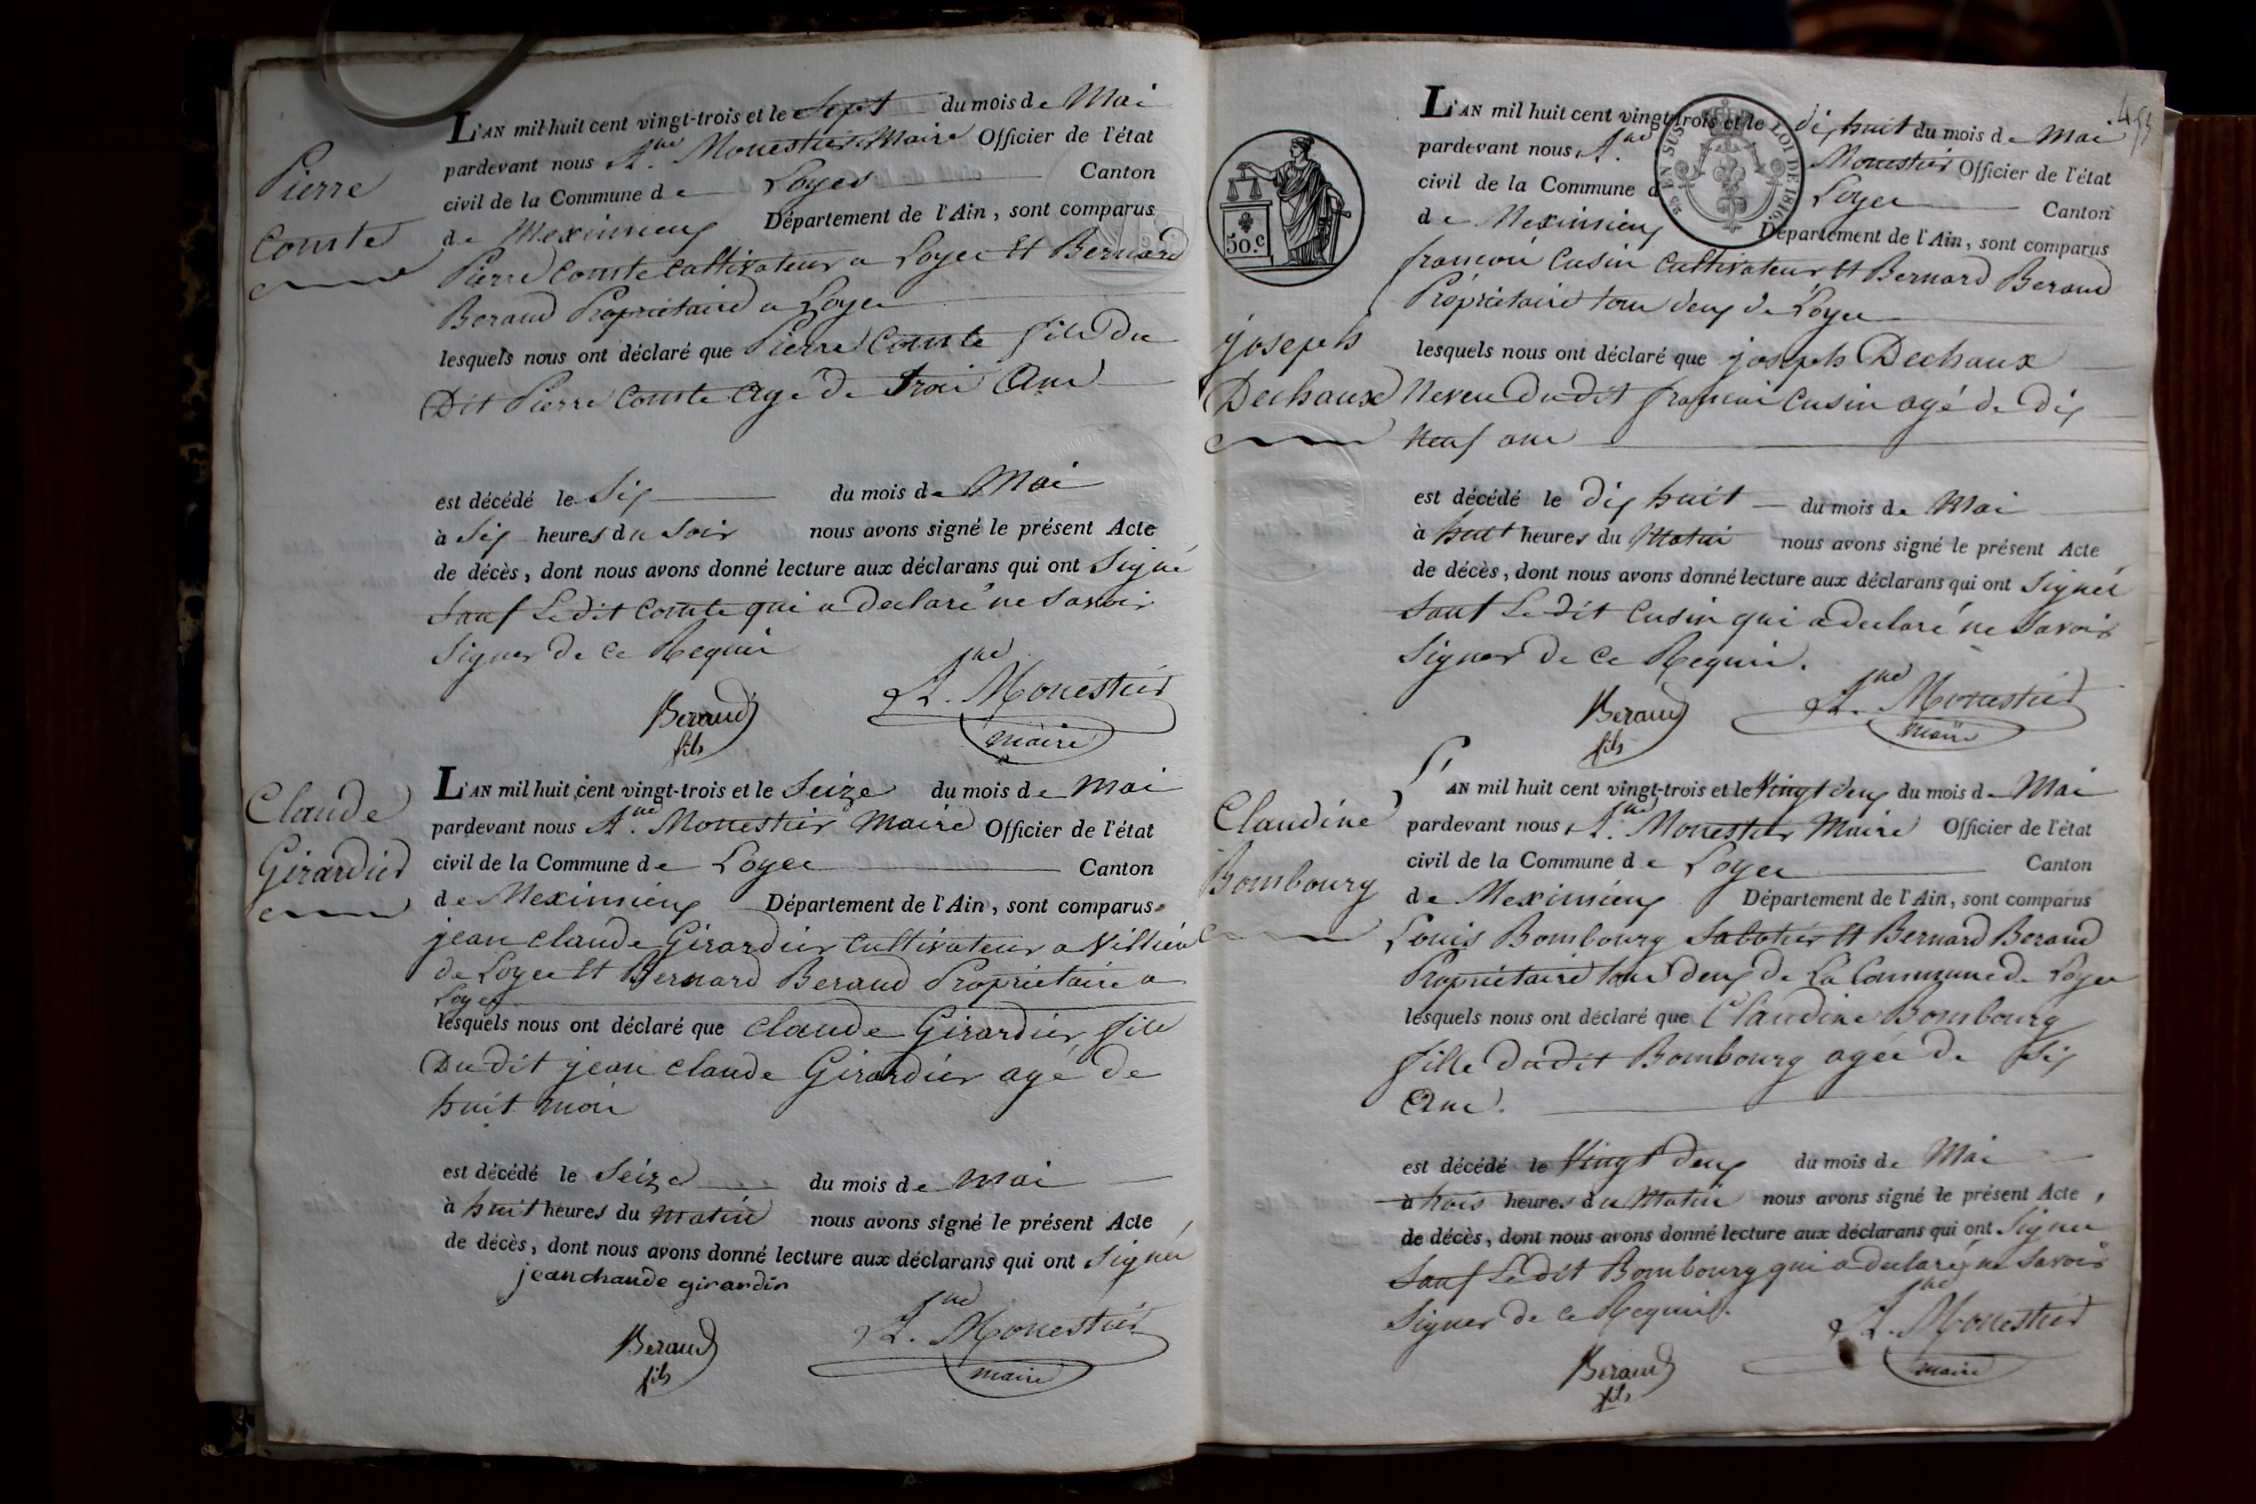 Pierre
Comte
L'AN mil huit cent vingt-trois et le Sept du mois de Mai
pardevant nous A.ne Monestier Maire Officier de l'état
civil de la Commune de Loyes Canton
de Meximieux Département de l'Ain, sont comparus
Pierre Comte cultivateur a Loyes et Bernard
Beraud Propriétaire a Loyes
lesquels nous ont déclaré que Pierre Comte fils du
Dit Pierre Comte agé de trois Ans
est décédé le Six du mois de Mai
à Six heures du Soir nous avons signé le présent Acte
de décès, dont nous avons donné lecture aux déclarans qui ont Signé
Sauf Ledit Comte qui a declaré ne Savoir
Signer de ce Requis
Beraud A.ne Monestier
fils maire
Claude
Girardier
L'AN mil huit cent vingt-trois et le Seize du mois de Mai
pardevant nous A.ne Monestier Maire Officier de l'état
civil de la Commune de Loyes Canton
de Meximieux Département de l'Ain, sont comparus
jean claude Girardier cultivateur a Villieu
de Loyes et Bernard Beraud Propriétaire a
Loyes
lesquels nous ont déclaré que claude Girardier fils
Du dit jean claude Girardier agé de
huit mois
est décédé le Seize du mois de Mai
à huit heures du matin nous avons signé le présent Acte
de décès, dont nous avons donné lecture aux déclarans qui ont Signés
jean chaude girardin
Beraud A.ne Monestier
fils maire
453
EN SUS LOI DE 1816
50.c
joseph
Dechaux
L'AN mil huit cent vingt-trois et le dix huit du mois de Mai
pardevant nous A.ne Monestier Officier de l'état
civil de la Commune d Loyes Canton
de Meximieux Département de l'Ain, sont comparus
françois Cusin Cultivateur et Bernard Beraud
Propriétaire tous deux de Loyes
lesquels nous ont déclaré que joseph Dechaux
Neveu Dudit françois Cusin agé de dix
neuf ans
est décédé le dix huit du mois de Mai
à huit heures du Matin nous avons signé le présent Acte
de décès, dont nous avons donné lecture aux déclarans qui ont Signés
Sauf Le Dit Cusin qui a declaré ne Savoir
Signer de ce Requis.
Beraud A.ne Monestier
fils maire
Claudine
Bombourg
L'AN mil huit cent vingt-trois et le Vingt deux du mois de Mai
pardevant nous A.ne Monestier Maire Officier de l'état
civil de la Commune de Loyes Canton
de Meximieux Département de l'Ain, sont comparus
Louis Bombourg Sabotier et Bernard Beraud
Propriétaire tous deux de La Commune de Loyes
lesquels nous ont déclaré que Claudine Bombourg
fille dudit Bombourg agée de Six
Ans.
est décédé le Vingt deux du mois de Mai
à trois heures du Matin nous avons signé le présent Acte,
de décès, dont nous avons donné lecture aux déclarans qui ont Signés
Sauf Ledit Bombourg qui a declaré ne Savoir
Signer de ce Requis.
Beraud A.ne Monestier
fils maire